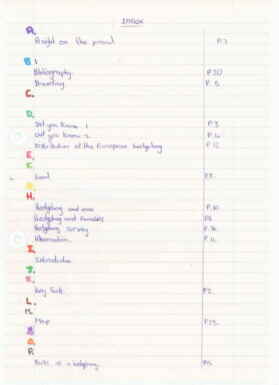 INDEX
A.
A night on the prowl P.7
B.
Bibliography. P.20
Breeding. P.5
C.
D.
Did you know 1 P.3
Did you know 2 P.4
Distribution of the European hedgehog P.12
E.
F.
Food P.8
G.
H.
Hedgehog and man P.10
Hedgehog and
Hedgehog survey
Hibernation P.11
I.
Introduction
J.
K.
Key facts P.2
L.
M.
Map P.13
N.
O.
P.
Parts of a hedgehog